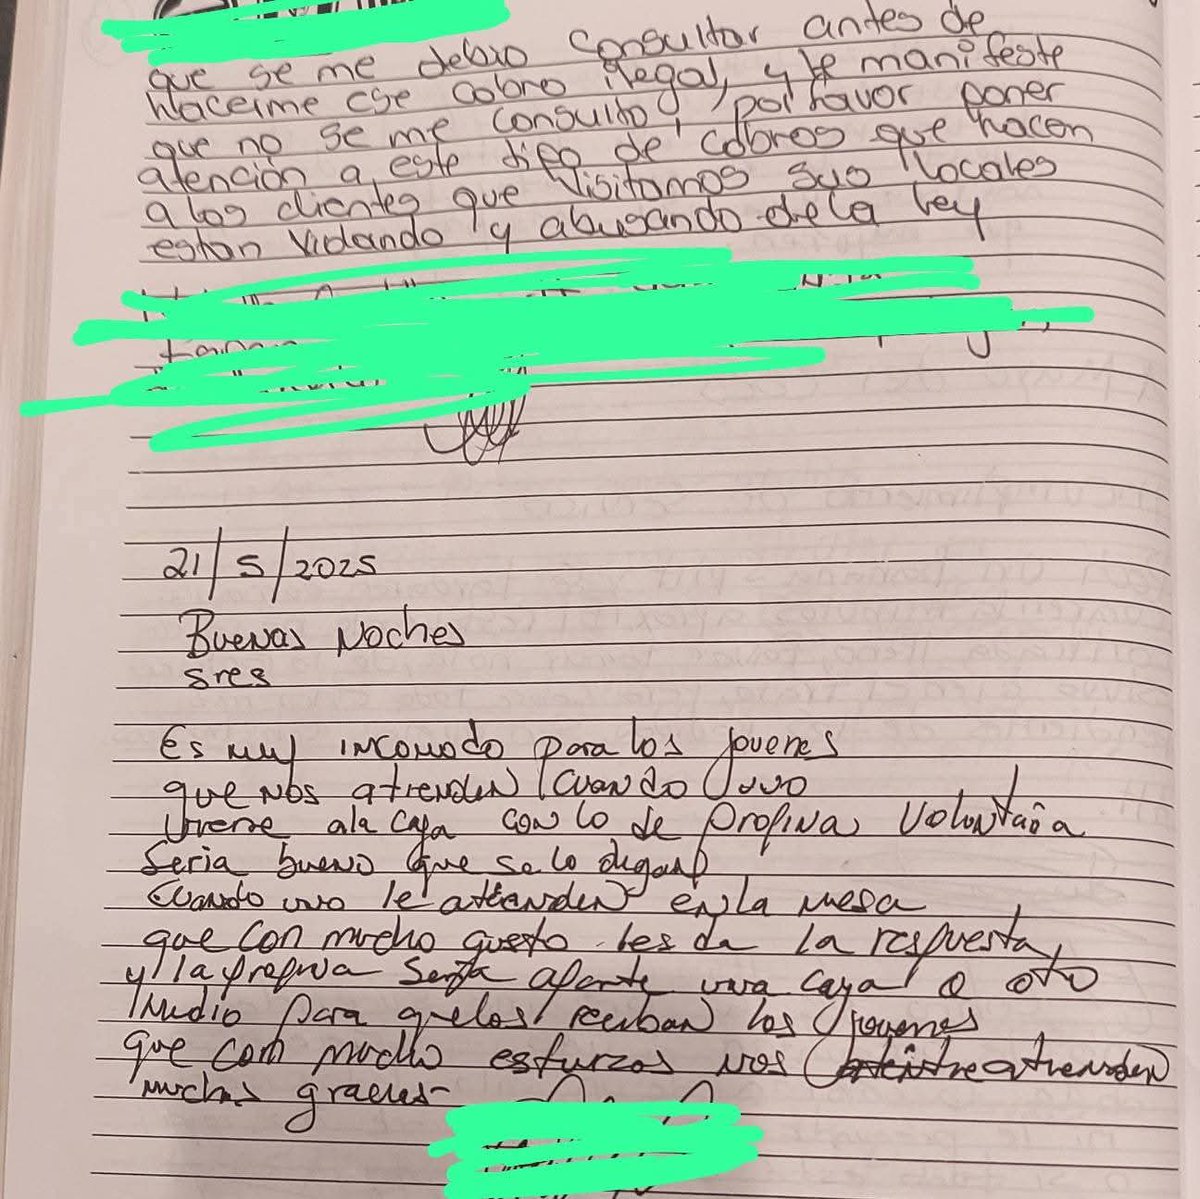 que se me debio consultar antes de
hacerme ese cobro ilegal, y le manifeste
que no se me consulto, por favor poner
atención a este tipo de cobros que hacen
a los clientes que visitamos sus locales
estan violando y abusando de la ley
21/5/2025
Buenas Noches
sres
Es muy incomodo para los jovenes
que nos atienden cuando uno
viene a la caja con lo de propina voluntaria
seria bueno que se lo digan
cuando uno le atienden en la mesa
que con mucho gusto les da la respuesta
y la propina seria aparte una caja o oto
medio para que los reciban los jovenes
que com mucho esfurzos nos atienden
muchas gracias-